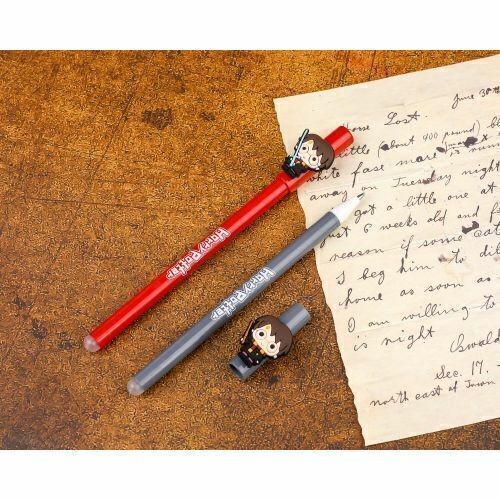 June 30th
Horse Lost.
little (about 400 pound)
white fase mare
away on Tuesday night
got a little one at
just 6 weeks old and
reason if some
I beg him to
home as soon as
I am willing to
is night
Oswald
Sec. 17.
north east of Town
Harry Potter
Harry Potter